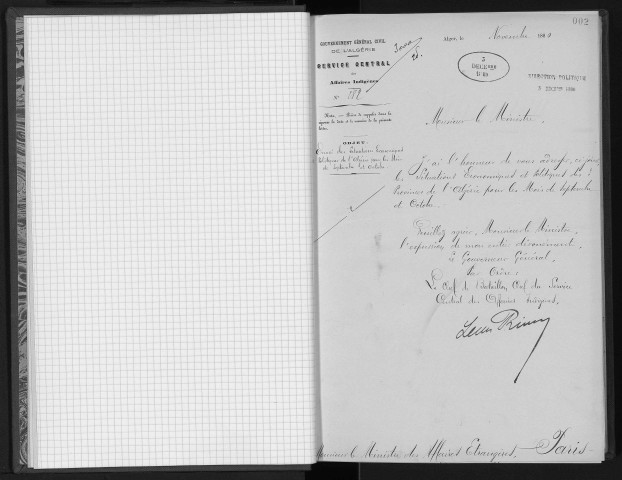 002
GOUVERNEMENT GÉNÉRAL CIVIL
DE L'ALGÉRIE
SERVICE CENTRAL
des
Affaires Indigènes
N°
OBJET:
Envoi des Situations Economiques
et Politiques de l'Algérie pour les Mois
de Septembre et Octobre
Alger, le Novembre 188
3
DECEMBRE
DIRECTION POLITIQUE
Monsieur le Ministre,
J'ai l'honneur de vous adresser, ci-joint,
les Situations Economiques et Politiques des 3
Provinces de l'Algérie pour les Mois de Septembre
et Octobre.
Veuillez agréer, Monsieur le Ministre,
l'expression de mon entier dévouement.
Le Gouverneur Général,
Par Ordre:
Le Chef de Bataillon, Chef du Service
Central des Affaires Indigènes,
Louis Rinn
Monsieur le Ministre des Affaires Etrangères. Paris